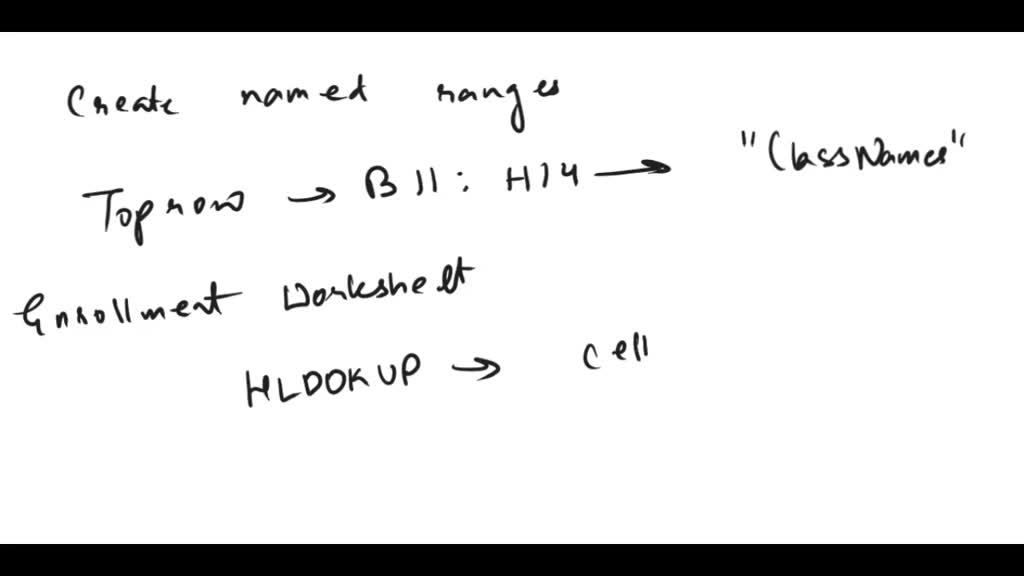 Create named ranges
Toprow → B11: H14 → "ClassNames"
Enrollment Worksheet
HLOOKUP → Cell